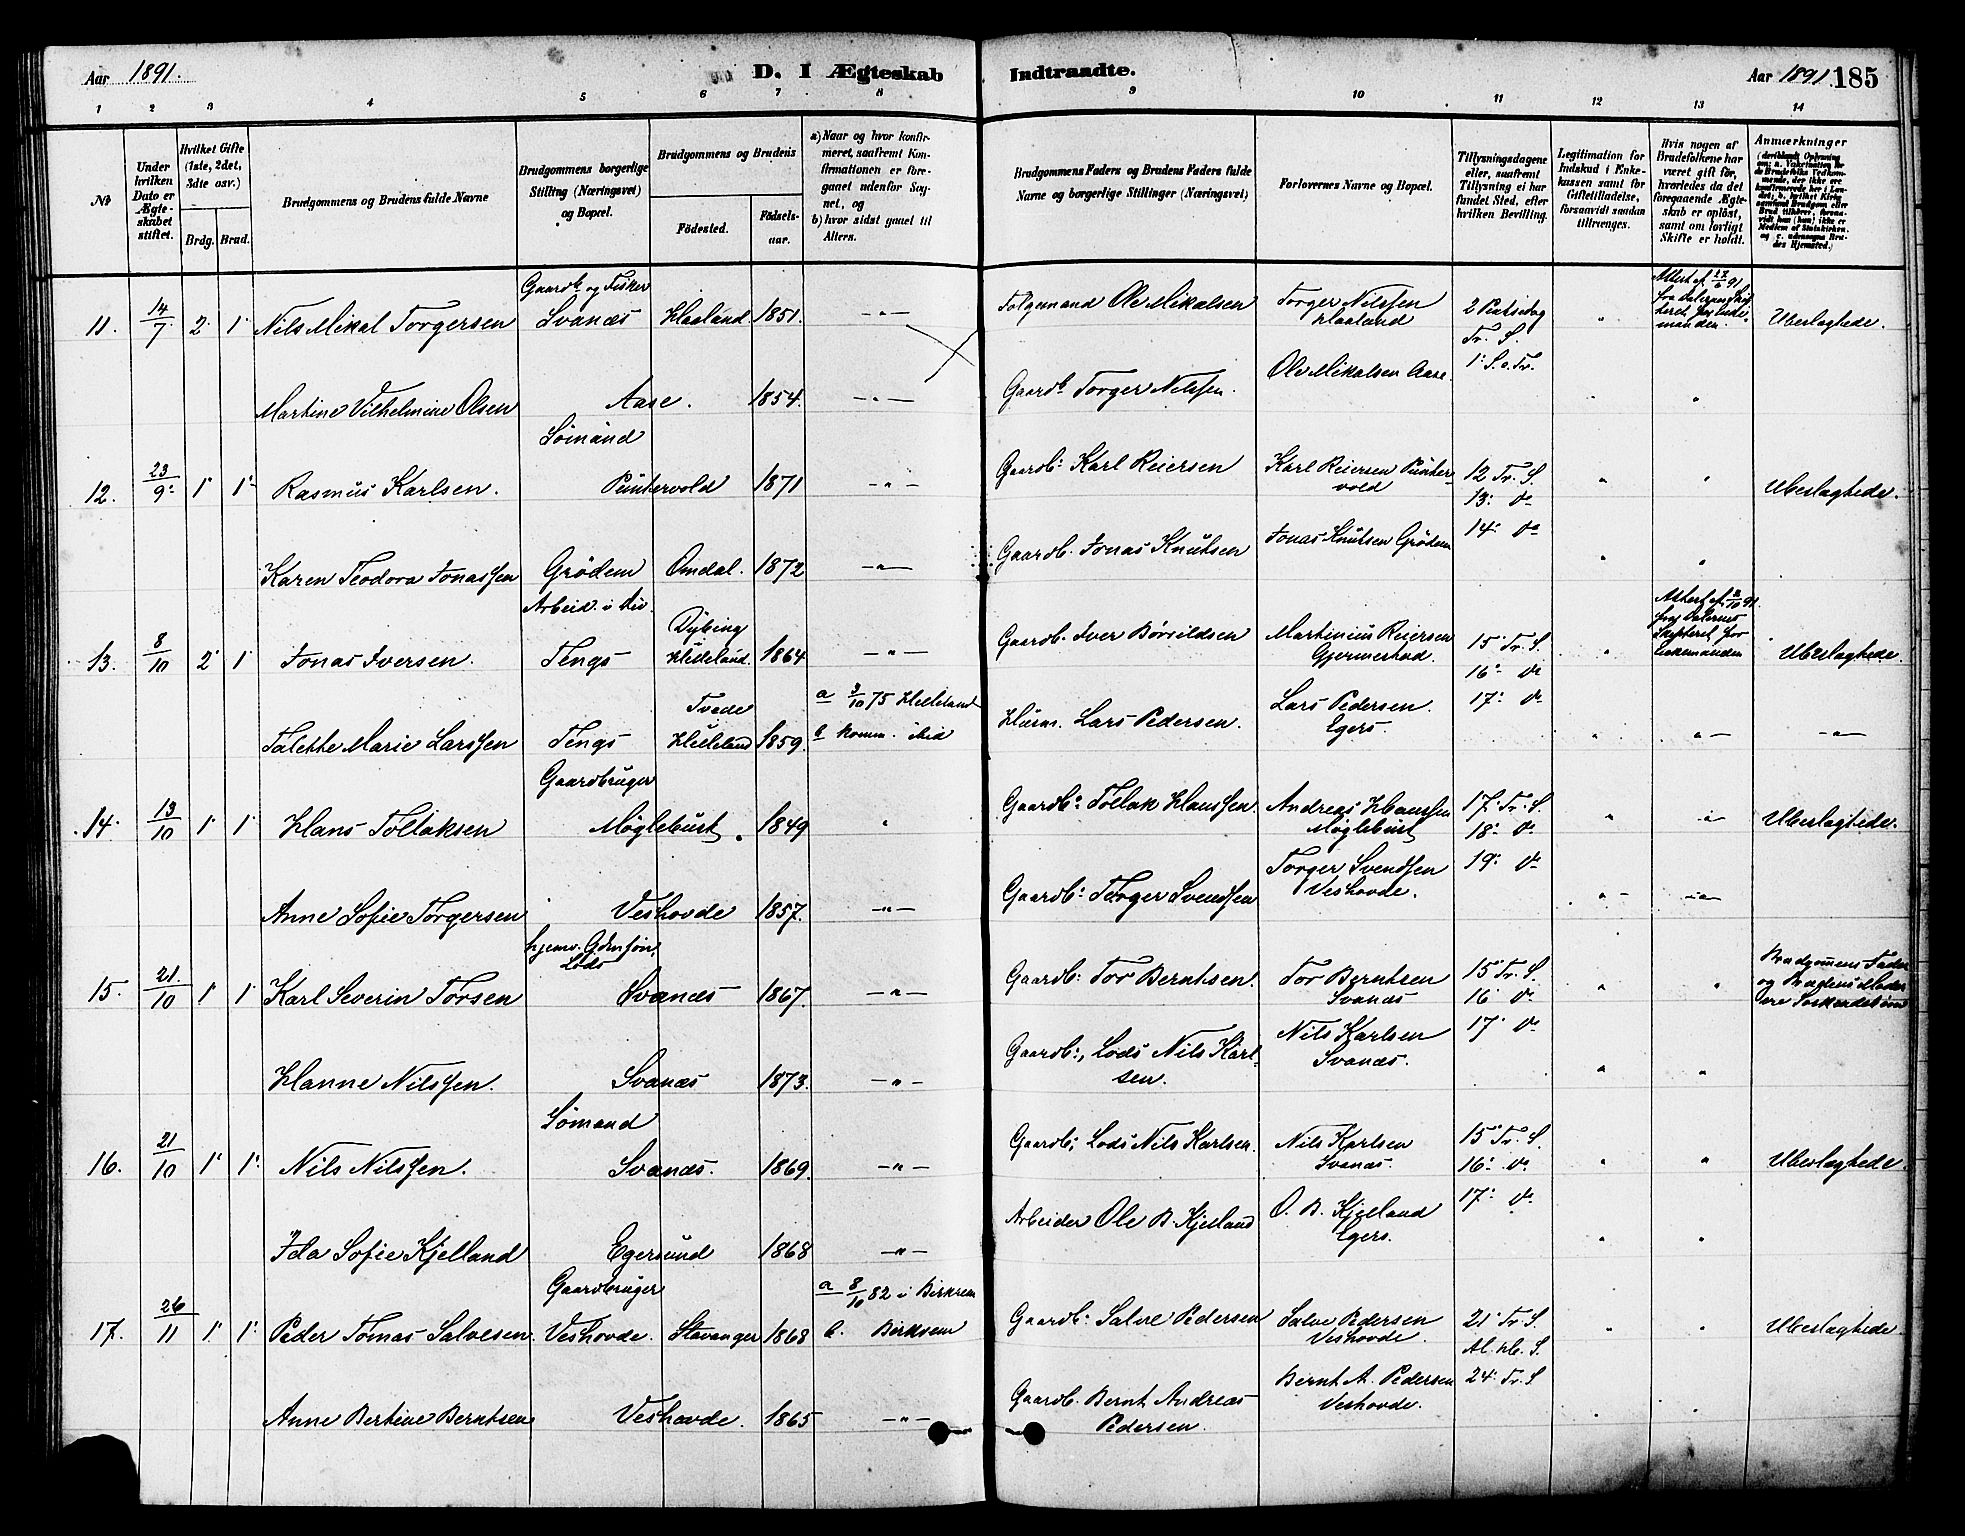 Aar 1891.
D. I Ægteskab
Indtraadte.
Aar 1891. 185
1 2 3 4 5 6 7 8 9 10 11 12 13 14
No
Under hvilken Dato er Ægteskabet stiftet.
Hvilket Gifte (1ste, 2det, 3die osv.)
Brdg. Brud.
Brudgommens og Brudens fulde Navne
Brudgommens borgerlige Stilling (Næringsvei) og Bopæl.
Brudgommens og Brudens
Fødested.
Fødselsaar.
a) Naar og hvor konfirmeret, saafremt Konfirmationen er foregaaet udenfor Sognet, og
b) hvor sidst gaaet til Alters.
Brudgommens Faders og Brudens Faders fulde Navne og borgerlige Stillinger (Næringsvei)
Forlovernes Navne og Bopæl.
Tillysningsdagene eller, saafremt Tillysning ei har fundet Sted, efter hvilken Bevilling.
Legitimation for Indskud i Enkekassen samt for Giftetilladelse, forsaavidt saadan tiltrænges.
Hvis nogen af Brudefolkene har været gift før, hvorledes da det foregaaende Ægteskab er opløst, samt om lovligt Skifte er holdt.
Anmærkninger
11. 14/7 2 1 Nils Mikal Torgersen Gaardb. og Fisker Svanæs Haaland 1851. -"- Folgemand Ole Mikalsen Torger Nilssen Haaland 2 Tr. S. " Attest af 22/6 91 fra Ubeslægtede.
Martine Vilhelmine Olsen Aase. 1854. -"- Gaardb. Torger Nilssen. Ole Mikalsen Aase. 1' S. e. Tr. " "
12. 23/9 1 1 Rasmus Karlsen. Sømand Puntervold 1871 -"- Gaardb: Karl Reiersen Karl Reiersen Puntervold 12 Tr. S. 13: do " " Ubeslægtede.
Karen Teodora Jonassen Grødem Omdal. 1872 -"- Gaardb. Jonas Knutsen Jonas Knutsen Grødem 14: do " "
13. 8/10 2 1 Jonas Iversen. Arbeid. Tengs Dybing Helleland. 1864 -"- Gaardb. Iver Børildsen Martinius Reiersen 15 Tr. S. 16: do " Attest af 2/10 91 fra Dalernes Skifteret for Enkemanden Ubeslægtede.
Talette Marie Larssen Tengs Tvede Helleland 1859. a 3/10 75 Helleland b komm. ibid Husm. Lars Pedersen. Lars Pedersen. Egers. 17: do " -"- -"-
14. 13/10 1 1 Hans Tollaksen Gaardbruger Møglebust. 1849 " Gaardb: Tollak Hanssen. Andreas Hanssen Møglebust 17: Tr. S. 18: do " -"- Ubeslægtede.
Anne Sofie Torgersen Veshovde 1857. -"- Gaardb: Torger Svendsen Torger Svendsen Veshovde. 19: do -"- -"-
15. 21/10 1 1 Karl Severin Torsen hjemv. Gdmsøn, Lods Svanæs 1867. -"- Gaardb: Tor Berntsen. Tor Berntsen Svanæs 15 Tr. S. 16 do " " Brudgommens Fader og Brudens Moder ere Søskendebørn
Hanne Nilssen. Svanæs 1873. -"- Gaardb:, Lods Nils Karlsen. Nils Karlsen Svanæs. 17 do " "
16. 21/10 1 1 Nils Nilssen. Sømand Svanæs. 1869. -"- Gaardb; Lods Nils Karlsen. Nils Karlsen Svanæs. 15 Tr. S. 16: do " " Ubeslægtede.
Ida Sofie Kjelland Egersund 1868 -"- Arbeider Ole B. Kjelland O. B. Kjelland Egers. 17: do " "
17. 26/11 1 1 Peder Tomas Salvesen Gaardbruger Veshovde. Stavanger 1868 a 8/10 82 i Birkrem b. Birkrem Gaardb: Salve Pedersen Salve Pedersen Veshovde. 21 Tr. S. Al. H. S. " " Ubeslægtede.
Anne Bertine Berntsen Veshovde. 1865 -"- Gaardb. Bernt Andreas Pedersen. Bernt A. Pedersen Veshovde. 24 Tr. S " "